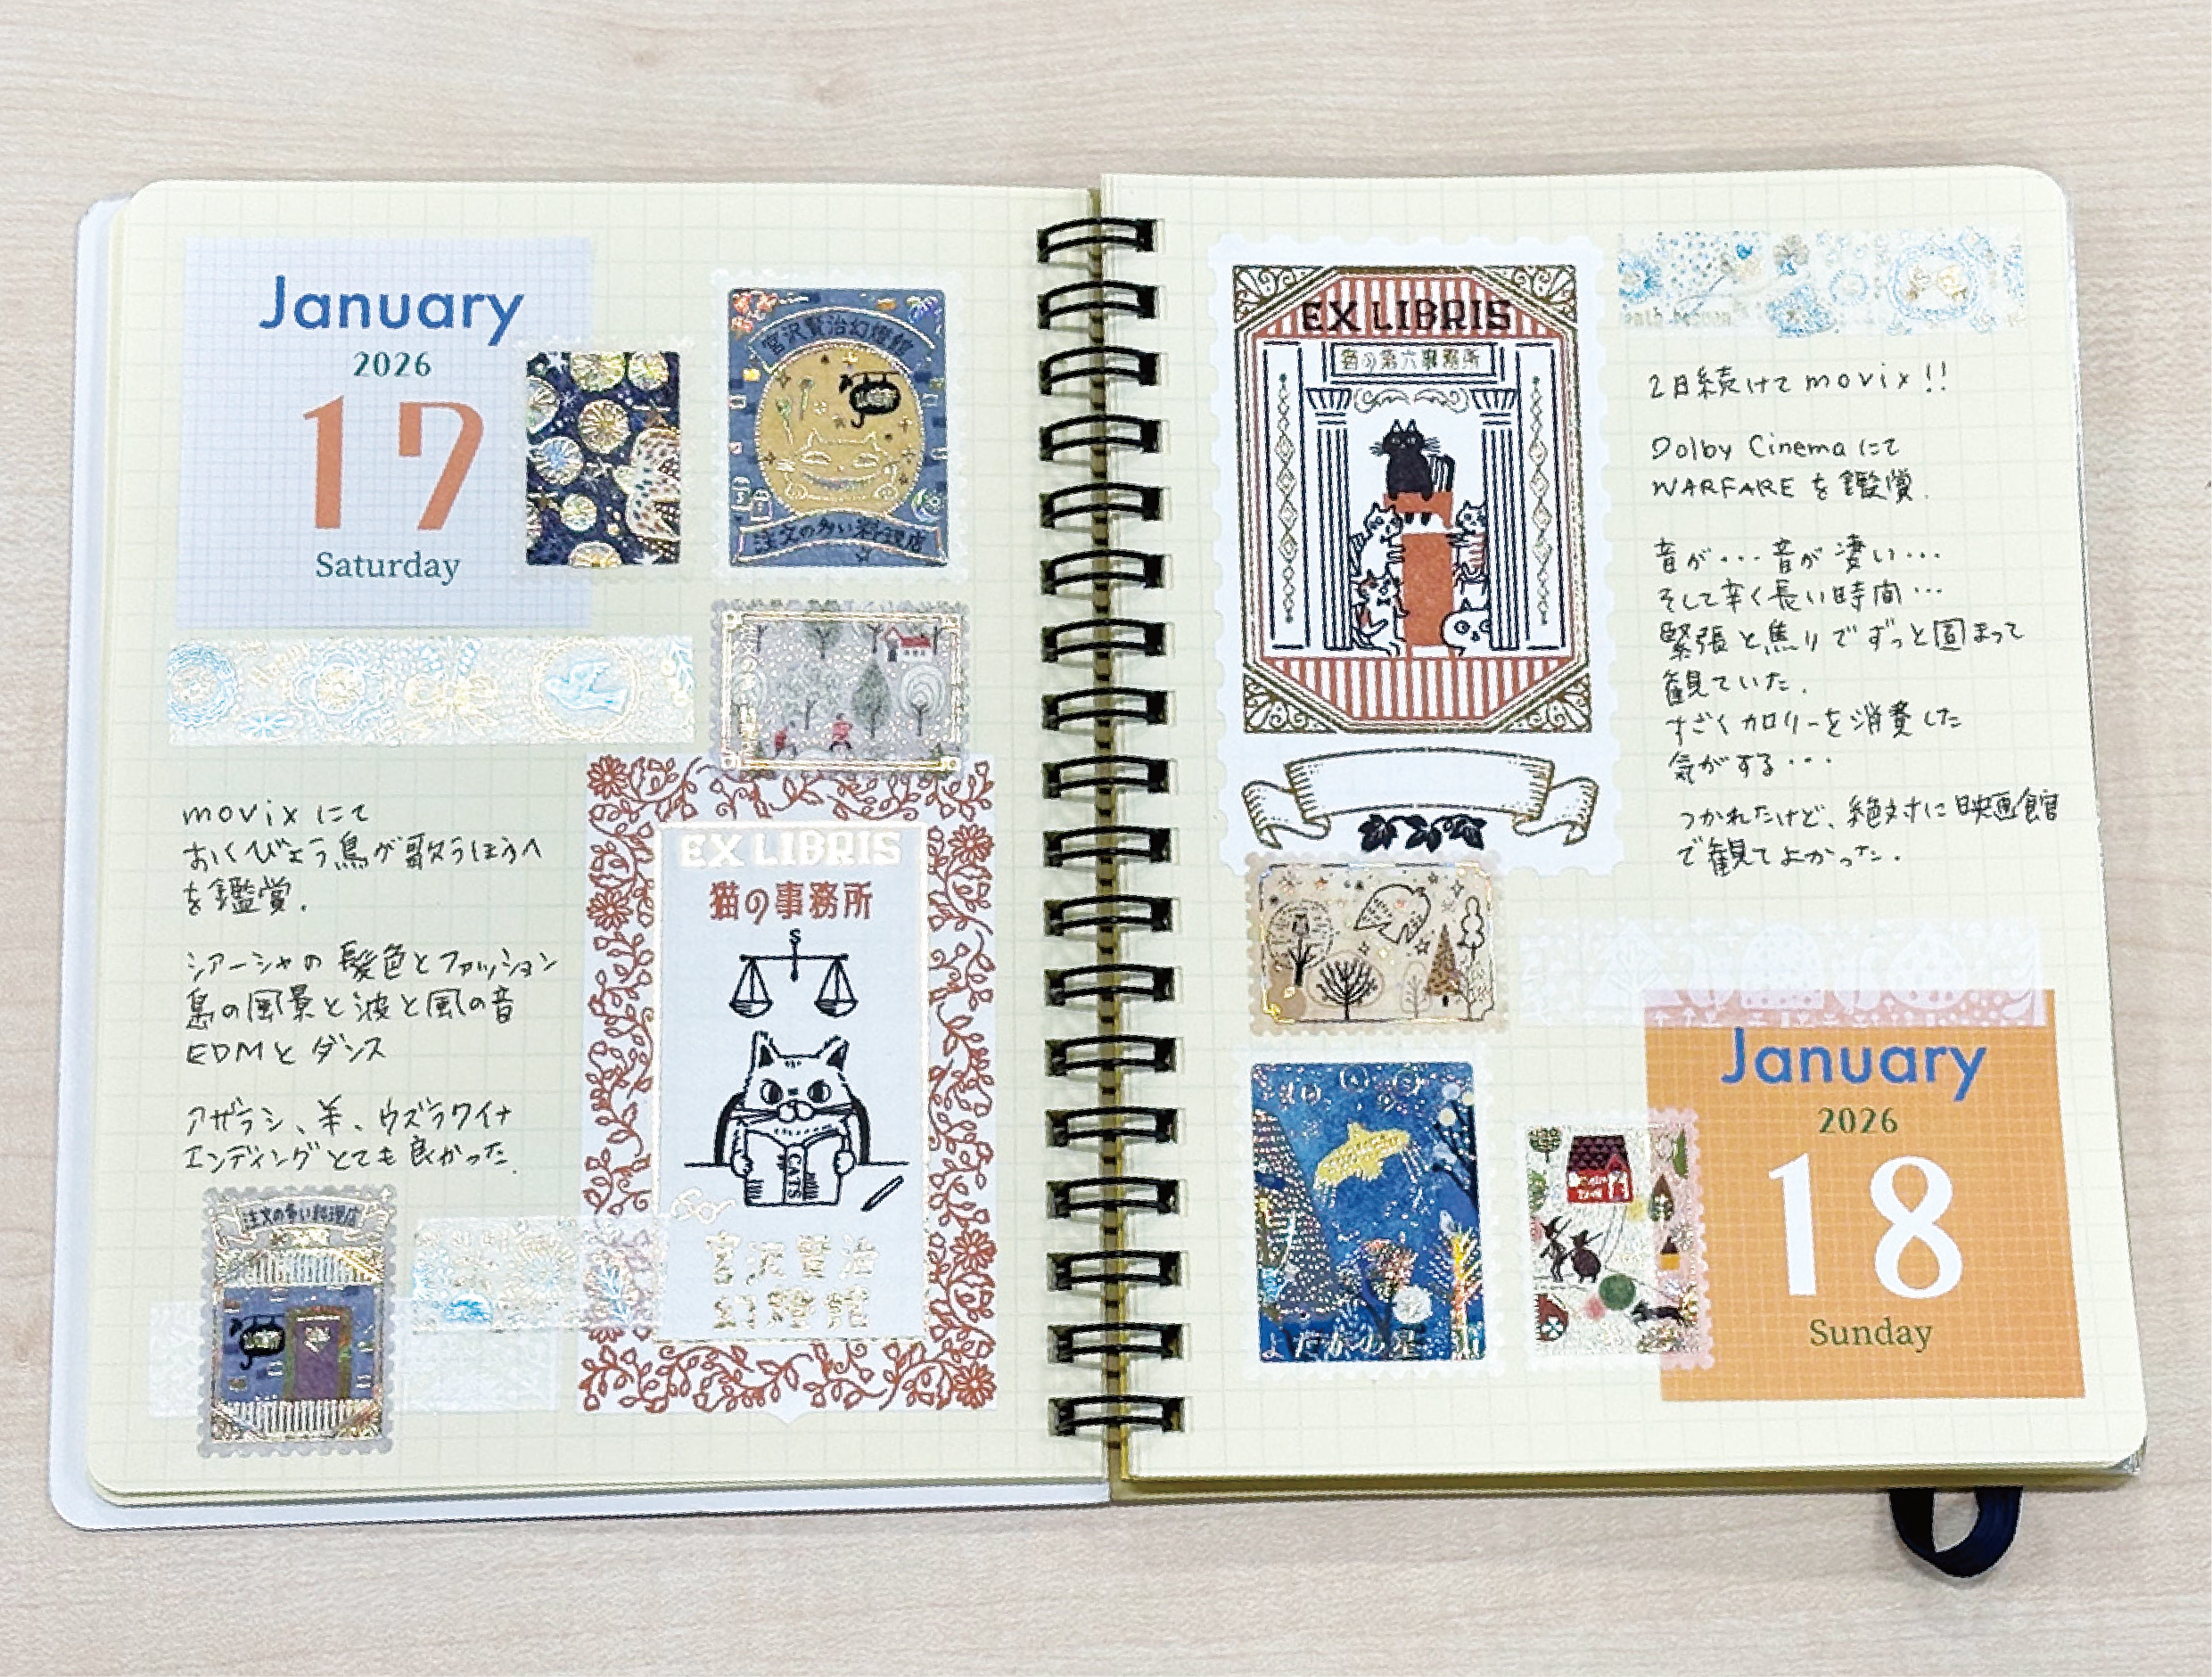 January
2026
17
Saturday
宮沢賢治幻燈館
注文の多い料理店
movixにて
おくびょう鳥が歌うほうへ
を鑑賞.
シアーシャの髪色とファッション
島の風景と波と風の音
EDMとダンス
アザラシ、羊、ウズラクイナ
エンディングとても良かった.
注文の多い料理店
EX LIBRIS
猫の事務所
CATS
宮沢賢治
幻燈館
EX LIBRIS
猫の第六事務所
2日続けてmovix!!
Dolby Cinemaにて
WARFAREを鑑賞.
音が・・・音が凄い・・・
そして辛く長い時間・・・
緊張と焦りでずっと固まって
観ていた.
すごくカロリーを消費した
気がする・・・
つかれたけど、絶対に映画館
で観てよかった.
よだかの星
January
2026
18
Sunday